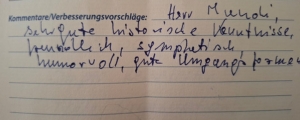 Kommentare/Verbesserungsvorschläge: Herr
sehr gute historische Kenntnisse,
freundlich, sympathisch,
humorvoll, gute Umgangsformen